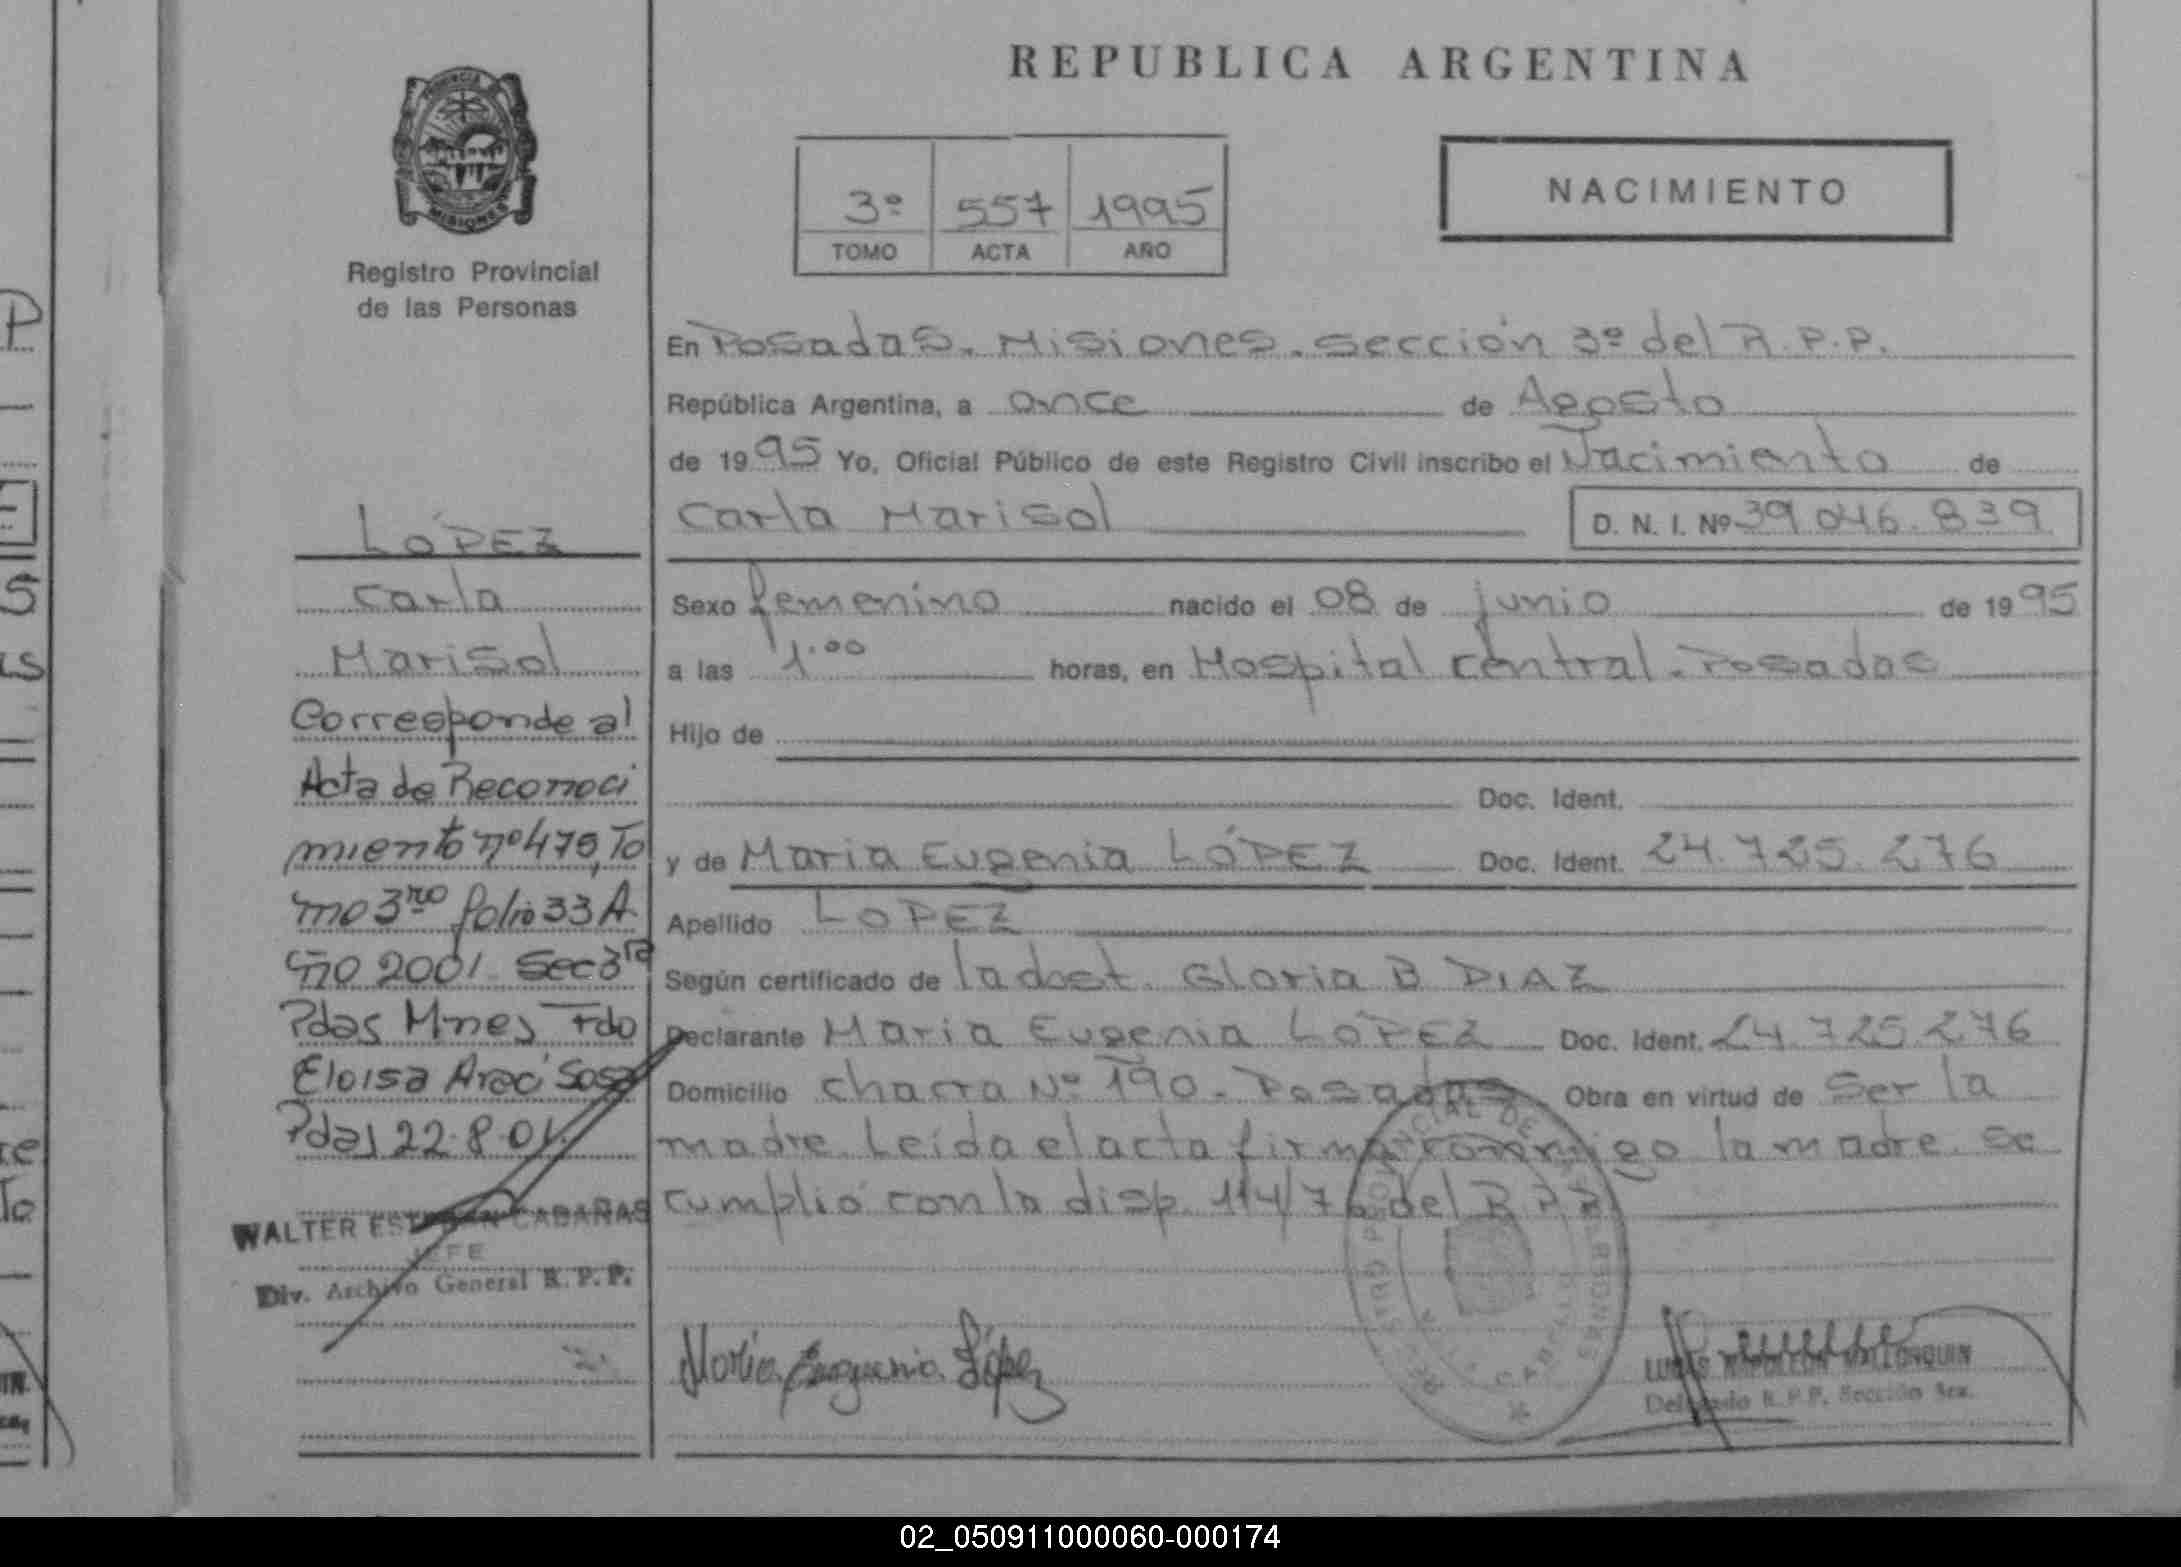 REPUBLICA ARGENTINA
PROVINCIA
MISIONES
Registro Provincial
de las Personas
3º 557 1995
TOMO ACTA AÑO
NACIMIENTO
En Posadas. Misiones. Sección 3º del R.P.P.
República Argentina, a once de Agosto
de 1995 Yo, Oficial Público de este Registro Civil inscribo el Nacimiento de
Carla Marisol D. N. I. Nº 39.046.839
Sexo femenino nacido el 08 de junio de 1995
a las 1.00 horas, en Hospital central. Posadas
Hijo de
Doc. Ident.
y de Maria Eugenia LÓPEZ Doc. Ident. 24.725.276
Apellido LOPEZ
Según certificado de la dost. Gloria B DIAZ
Declarante Maria Eugenia LÓPEZ Doc. Ident. 24.725.276
Domicilio chacra Nº 190. Posadas Obra en virtud de Ser la
madre. Leída el acta firma conmigo la madre. se
cumplió con la disp. 114/76 del R.P.P.
LÓPEZ
Carla
Marisol
Corresponde al
Acta de Reconoci
miento nº 475, To
mo 3ro folio 33 A
ño 2001 Sec 3ra
Pdas Mnes Fdo
Eloisa Araci Sosa
Pdas 22.8.01.
WALTER ESTEBAN CABAÑAS
JEFE
Div. Archivo General R. P. P.
Maria Eugenia López
LUCAS NAPOLEON MALLORQUIN
Delegado R.P.P. Sección 3ra.
02_050911000060-000174